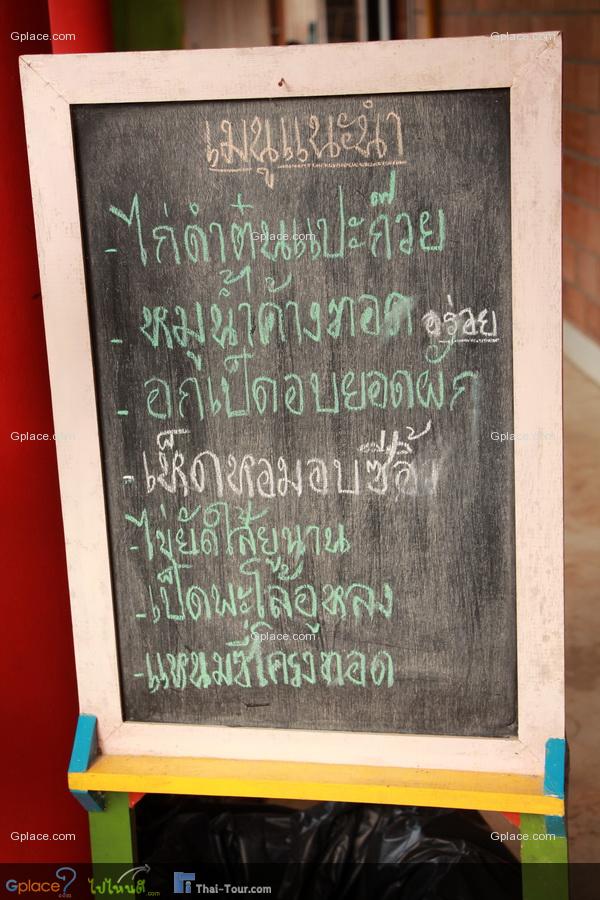 เมนูแนะนำ
- ไก่ดำตุ๋นแปะก๊วย
- หมูน้ำค้างทอด อร่อย
- อกเป็ดอบยอดผัก
- เห็ดหอมอบซีอิ้ว
- ไข่ยัดไส้ยูนาน
- เป็ดพะโล้อู๋หลง
- แหนมซี่โครงทอด
Gplace.com Gplace.com
Gplace.com
Gplace.com Gplace.com
Gplace.com
Gplace.com Gplace.com
Gplace?.com ไปไหนดี.com Thai-Tour.com